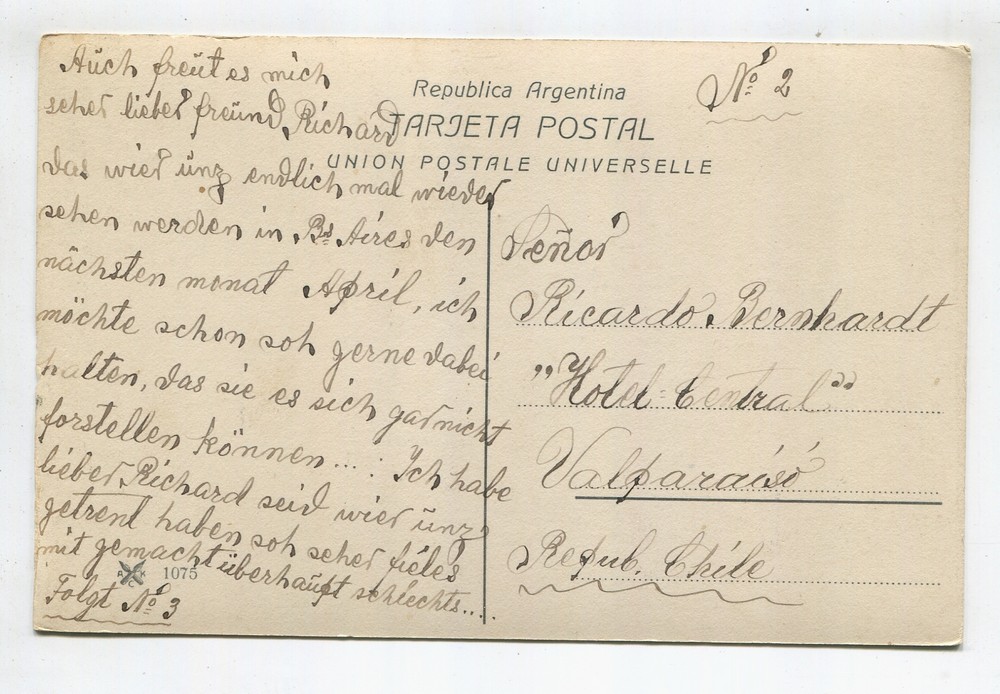 Auch freut es mich
seher lieber freund Richard
das wier unz endlich mal wieder
sehen werden in Bs Aires den
nächsten monat April, ich
möchte schon soh gerne dabei
halten, das sie es sich garnicht
forstellen können....: Ich habe
lieber Richard seid wier unz
getrent haben soh seher fieles
mit gemacht überhaupt schlechts....
Folgt No 3
A K C
1075
Republica Argentina
TARJETA POSTAL
UNION POSTALE UNIVERSELLE
No 2
Señor
Ricardo Bernhardt
„Hotel-Central"
Valparaiso
Repub. Chile